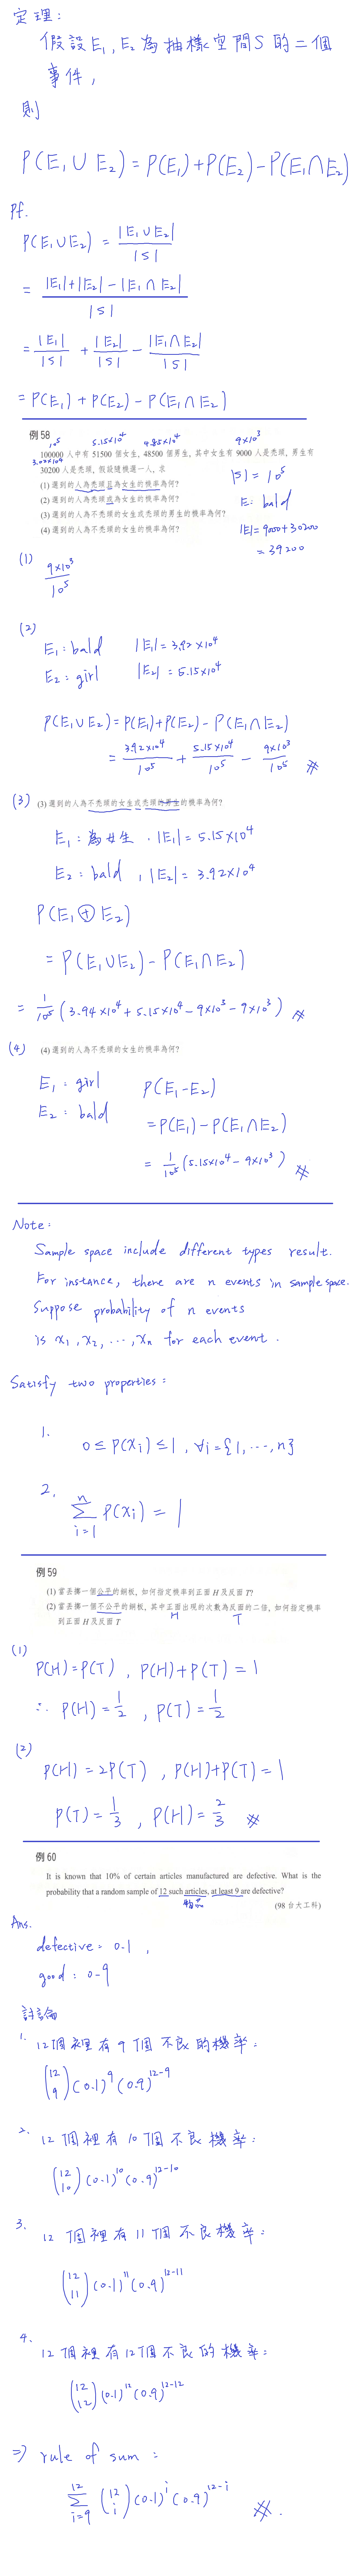 定理:
假設E₁, E₂為抽樣空間S的二個
事件,
則
P(E₁ ∪ E₂) = P(E₁)+P(E₂)-P(E₁∩E₂)
Pf.
P(E₁∪E₂) = |E₁∪E₂| / |S|
= (|E₁|+|E₂|-|E₁∩E₂|) / |S|
= |E₁|/|S| + |E₂|/|S| - |E₁∩E₂|/|S|
= P(E₁) + P(E₂) - P(E₁∩E₂)
例 58
10⁵ 5.15×10⁴ 4.85×10⁴ 9×10³
100000 人中有 51500 個女生, 48500 個男生, 其中女生有 9000 人是禿頭, 男生有
3.02×10⁴
30200 人是禿頭, 假設隨機選一人, 求
(1) 選到的人為禿頭且為女生的機率為何?
(2) 選到的人為禿頭或為女生的機率為何?
(3) 選到的人為不禿頭的女生或禿頭的男生的機率為何?
(4) 選到的人為不禿頭的女生的機率為何?
|S| = 10⁵
E: bald
|E| = 9000+30200
= 39200
(1) 9×10³ / 10⁵
(2)
E₁: bald |E₁| = 3.92×10⁴
E₂: girl |E₂| = 5.15×10⁴
P(E₁∪E₂) = P(E₁)+P(E₂) - P(E₁∩E₂)
= 3.92×10⁴/10⁵ + 5.15×10⁴/10⁵ - 9×10³/10⁵ #
(3) (3) 選到的人為不禿頭的女生或禿頭的男生的機率為何?
E₁: 為女生. |E₁| = 5.15×10⁴
E₂: bald, |E₂| = 3.92×10⁴
P(E₁ ⊕ E₂)
= P(E₁∪E₂) - P(E₁∩E₂)
= 1/10⁵ (3.94×10⁴ + 5.15×10⁴ - 9×10³ - 9×10³) #
(4) (4) 選到的人為不禿頭的女生的機率為何?
E₁: girl P(E₁-E₂)
E₂: bald = P(E₁) - P(E₁∩E₂)
= 1/10⁵ (5.15×10⁴ - 9×10³) #
Note:
Sample space include different types result.
For instance, there are n events in sample space.
Suppose probability of n events
is x₁, x₂, ..., xₙ for each event.
Satisfy two properties:
1.
0 ≤ P(xᵢ) ≤ 1, ∀i = {1, ..., n}
2.
∑ᵢ₌₁ⁿ P(xᵢ) = 1
例 59
(1) 當丟擲一個公平的銅板, 如何指定機率到正面 H 及反面 T?
(2) 當丟擲一個不公平的銅板, 其中正面出現的次數為反面的二倍, 如何指定機率
到正面 H 及反面 T
H T
(1)
P(H) = P(T), P(H)+P(T) = 1
∴ P(H) = 1/2, P(T) = 1/2
(2)
P(H) = 2P(T), P(H)+P(T) = 1
P(T) = 1/3, P(H) = 2/3 #
例 60
It is known that 10% of certain articles manufactured are defective. What is the
probability that a random sample of 12 such articles, at least 9 are defective?
物品
(98 台大工科)
Ans.
defective: 0.1,
good: 0.9
討論
1. 12個裡有9個不良的機率:
(12 9)(0.1)⁹(0.9)¹²⁻⁹
2. 12個裡有10個不良機率:
(12 10)(0.1)¹⁰(0.9)¹²⁻¹⁰
3. 12個裡有11個不良機率:
(12 11)(0.1)¹¹(0.9)¹²⁻¹¹
4. 12個裡有12個不良的機率:
(12 12)(0.1)¹²(0.9)¹²⁻¹²
⇒ rule of sum:
∑ᵢ₌₉¹² (12 i)(0.1)ⁱ(0.9)¹²⁻ⁱ #.